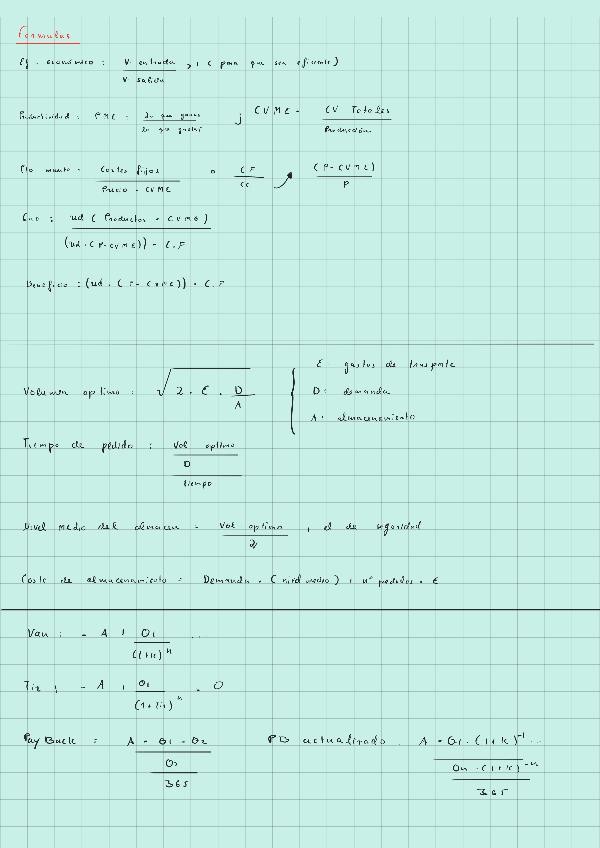 Formulas
Ef. económico: V. entrada / V. salida > 1 (para que sea eficiente)
Productividad: PME = lo que ganas / lo que gastas ; CVME = CV Totales / Producción
Pto muerto = Costes fijos / Precio - CVME o CF / CC → (P-CVME) / P
ud (Productos - CVME) / (ud. (P-CVME)) - C.F
Beneficio: (ud. (P-CVME)) - C.F
Volumen optimo: √ 2. E. D / A
E: gastos de transporte
D: demanda
A: almacenamiento
Tiempo de pedido: Vol optimo / D / tiempo
Nivel medio del almacen = Vol optimo / 2 + el de seguridad
Coste de almacenamiento = Demanda. (nivel medio) + nº pedidos. E
Van: - A + Q1 / (1+k)^n ...
Tir: - A + Q1 / (1+tir)^n = 0
PayBack: A - Q1 - Q2 / Q3 / 365
PB actualizado: A - Q1. (1+k)^-1 ... / Qn. (1+k)^-n / 365